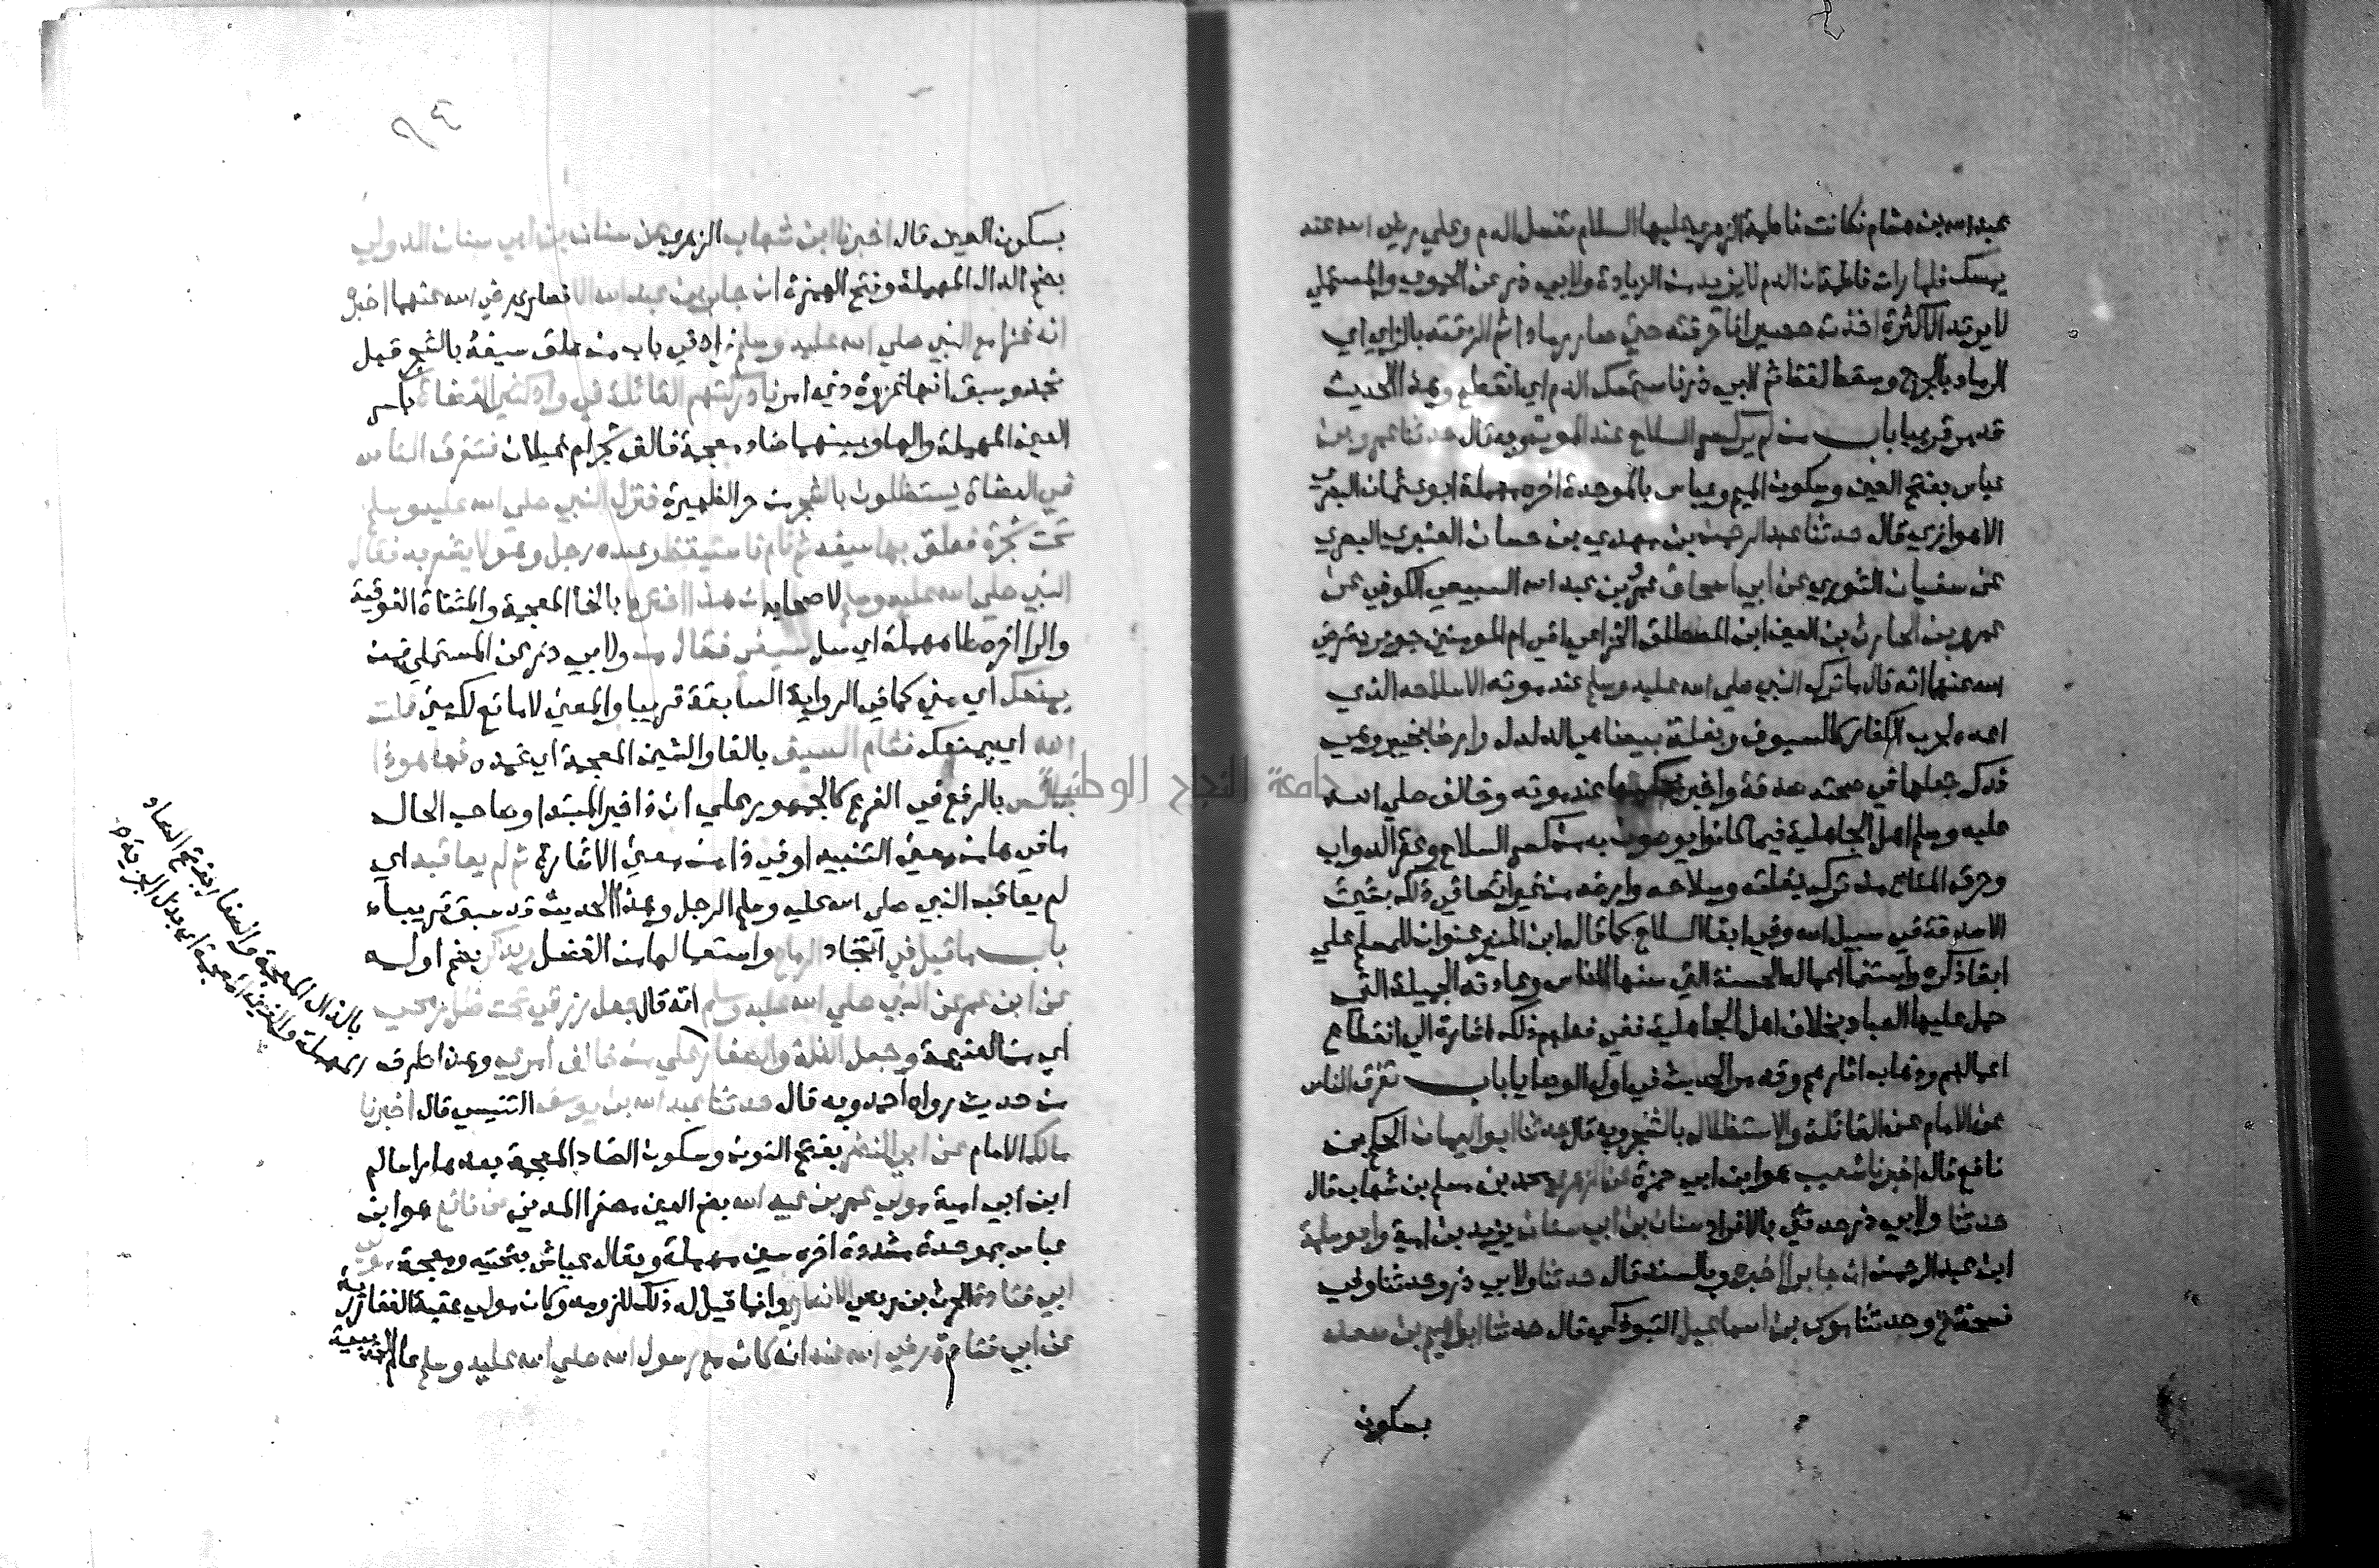 عبد الله بن هشام فكانت فاطمة الزهري عليها السلام تغسل الدم وعلي رضي الله عنه
يمسك فلما رات فاطمة ان الدم لا يزيد من الزيادة ولابي ذر عن الحموي والمستملي
لا يرتد الا كثرة اخذت حصيرا فاحرقته حتي صار رمادا ثم الزقته بالزاي اي
الرماد بالجرح وسقط لفظ ثم لابي ذر فاستمسك الدم اي انقطع وهذا الحديث
قد مر قريبا باب من لم ير كسر السلاح عند الموت وبه قال حدثنا عمرو بن
عباس بفتح العين وسكون الميم وعباس بالموحدة اخره مهملة ابو عثمان البصري
الاهوازي قال حدثنا عبد الرحمن بن مهدي بن حسان العنبري البصري
عن سفيان الثوري عن ابي اسحاق عمرو بن عبد الله السبيعي الكوفي عن
عمرو بن الحارث بن المصطلق الخزاعي اخي ام المومنين جويرية رضي
الله عنها انه قال ما ترك النبي صلي الله عليه وسلم عند موته الا سلاحه الذي
اعده لحرب الكفار كالسيوف وبغلة بيضا هي الدلدل وارضا بخيبر وهي
فدك جعلها في صحته صدقة واخبر بحكمها عند موته وخالف صلي الله
عليه وسلم اهل الجاهلية فيما كانوا يوصون به من كسر السلاح وعقر الدواب
وحرق المتاع من ترك بغلته وسلاحه وارضه من غير ايصا في ذلك بشي
الا صدقة في سبيل الله وفي ابقا السلاح كما قال ابن المنير عنوان للمسلم علي
ابقا ذكره واستنما اعماله الحسنة التي سنها للناس وعادته الجميلة التي
حمل عليها العباد بخلاف اهل الجاهلية ففي فعلهم ذلك اشارة الي انقطاع
اعمالهم وذهاب اثارهم وقد مر الحديث في اول الوصايا باب تفرق الناس
عن الامام عند القائلة والاستظلال بالشجر وبه قال حدثنا ابو اليمان الحكم بن
نافع قال اخبرنا شعيب هو ابن ابي حمزة عن الزهري محمد بن مسلم بن شهاب قال
حدثنا ولابي ذر حدثني بالافراد سنان بن ابي سنان يزيد بن امية وابو سلمة
ابن عبد الرحمن ان جابرا اخبره وبالسند قال حدثنا ولابي ذر وحدثنا وفي
نسخة ح وحدثنا موسى بن اسماعيل التبوذكي قال حدثنا ابراهيم بن سعد
بسكون
بسكون العين قال اخبرنا ابن شهاب الزهري عن سنان بن ابي سنان الدولي
بضم الدال المهملة وفتح الهمزة ان جابر بن عبد الله الانصاري رضي الله عنهما اخبره
انه غزا مع النبي صلي الله عليه وسلم زاد في باب من علق سيفه بالشجر قبل
نجد وسبق انها غزوة ذي امر فادركتهم القائلة في واد كثير العضاه بكسر
العين المهملة والها وبينهما ضاد معجمة فالف شجر ام غيلان فتفرق الناس
في العضاة يستظلون بالشجر من حر الظهيرة فنزل النبي صلي الله عليه وسلم
تحت شجرة فعلق بها سيفه ثم نام فاستيقظ وعنده رجل وهو لا يشعر به فقال
النبي صلي الله عليه وسلم لاصحابه ان هذا اخترط بالخا المعجمة والمثناة الفوقية
والرا اخره طا مهملة اي سل سيفي فقال من ولابي ذر عن المستملي فمن
يمنعك اي مني كما في الرواية السابقة قريبا والمعني لا مانع لك مني قلت
الله اي يمنعك فشام السيف بالفا والشين المعجمة اي غمده فها هو ذا
جالس بالرفع في الفرع كالجمهور علي ان ذا خبر المبتدا وصاحب الحال
ما في ها من معني التنبيه او في ذا من معني الاشارة ثم لم يعاقبه اي
لم يعاقب النبي صلي الله عليه وسلم الرجل وهذا الحديث قد سبق قريباء
باب ما قيل في اتخاذ الرماح واستعمالها من الفضل ويذكر بضم اوله
عن ابن عمر عن النبي صلي الله عليه وسلم انه قال جعل رزقي تحت ظل رمحي
اي من الغنيمة وجعل الذلة والصغار علي من خالف امري وهذا طرف
من حديث رواه احمد وبه قال حدثنا عبد الله بن يوسف التنيسي قال اخبرنا
مالك الامام عن ابي النضر بفتح النون وسكون الضاد المعجمة بعدها را سالم
ابن ابي امية مولي عمر بن عبيد الله بضم العين مصغرا المدني عن نافع هو ابن
عباس بموحدة مشددة اخره سين مهملة ويقال عياش بتحتية ومعجمة مولي
ابي قتادة الحرث بن ربعي الانصاري وانما قيل له ذلك للزومه وكان مولي عقيلة الغفارية
عن ابي قتادة رضي الله عنه انه كان مع رسول الله صلي الله عليه وسلم عام الحديبية
بالذال المعجمة والصغار بفتح الصاد
المهملة والغين المعجمة اي بذل الجزية